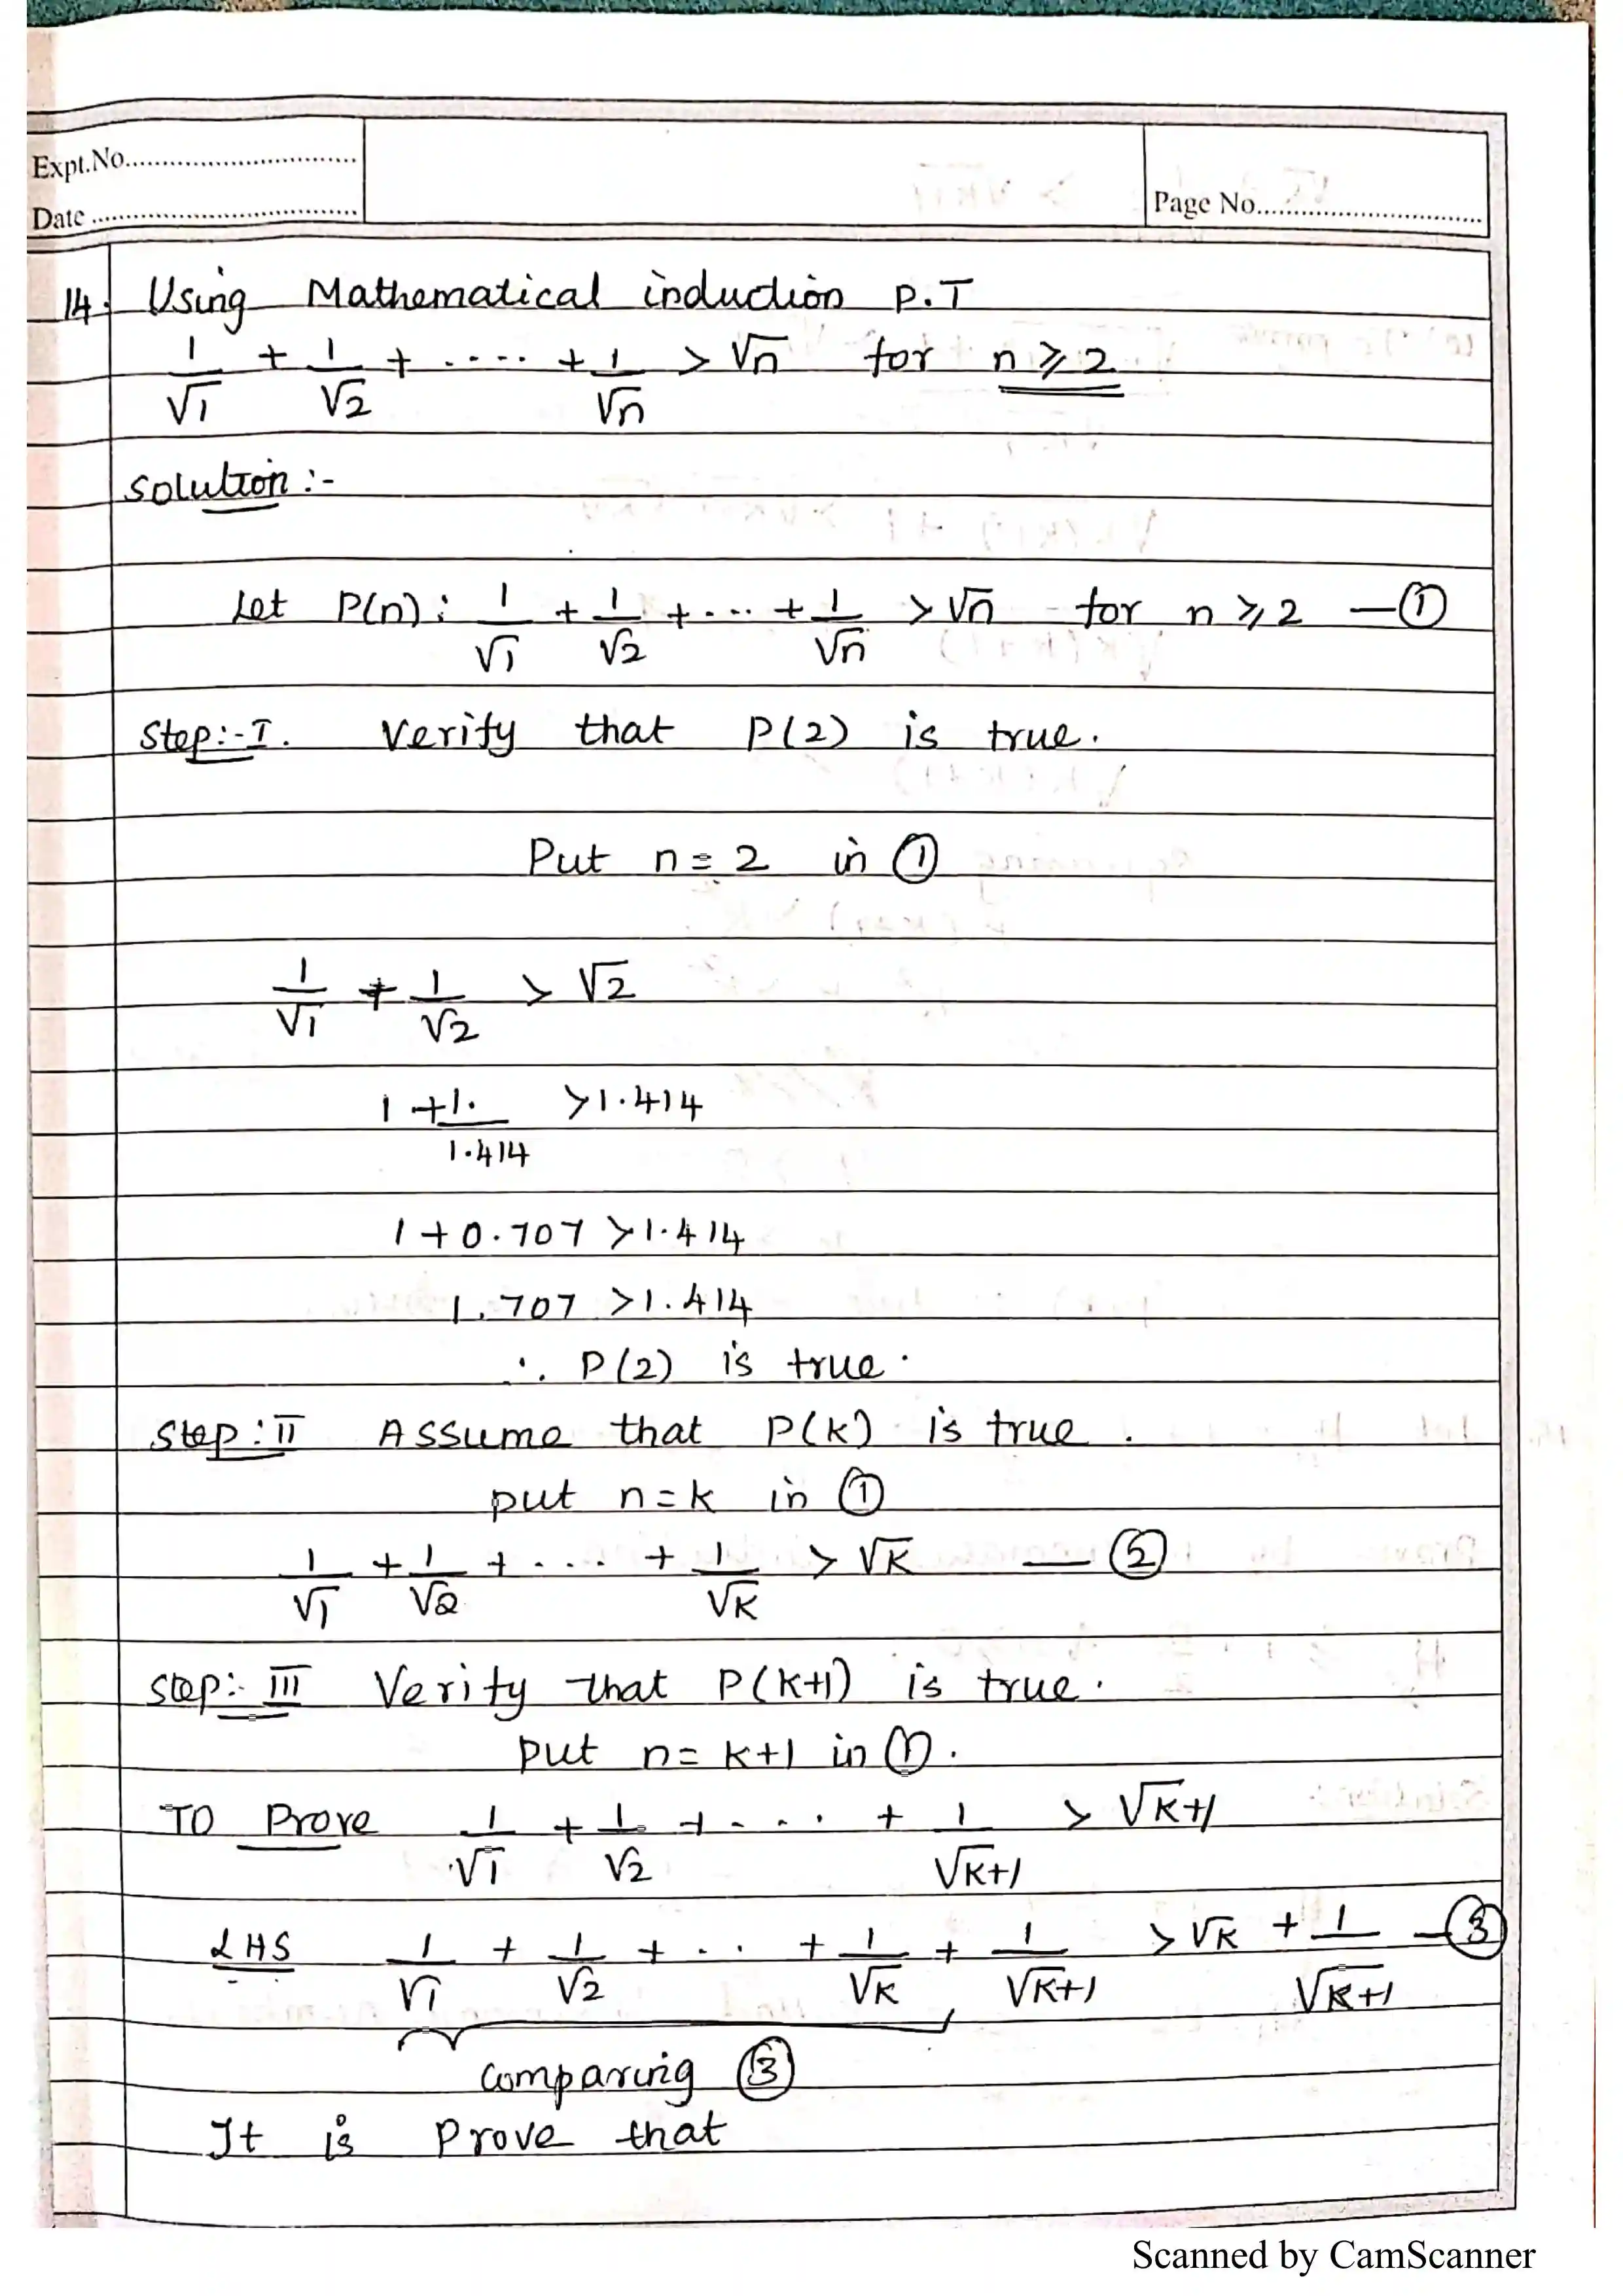 Expt.No..............................
Date ..................................
Page No..............................
14. Using Mathematical induction P.T
1/√1 + 1/√2 + ..... + 1/√n > √n for n ⩾ 2
Solution :-
Let P(n): 1/√1 + 1/√2 + ... + 1/√n > √n for n ⩾ 2 —①
Step:-I. Verify that P(2) is true.
Put n = 2 in ①
1/√1 + 1/√2 > √2
1 + 1./1.414 > 1.414
1 + 0.707 > 1.414
1.707 > 1.414
∴ P(2) is true.
Step:II Assume that P(k) is true.
put n = k in ①
1/√1 + 1/√2 + ... + 1/√k > √k —②
Step:- III Verify that P(k+1) is true.
put n = k+1 in ①.
TO Prove 1/√1 + 1/√2 + ... + 1/√k+1 > √k+1
LHS 1/√1 + 1/√2 + ... + 1/√k + 1/√k+1 > √k + 1/√k+1 —③
comparing ③
It is Prove that
Scanned by CamScanner